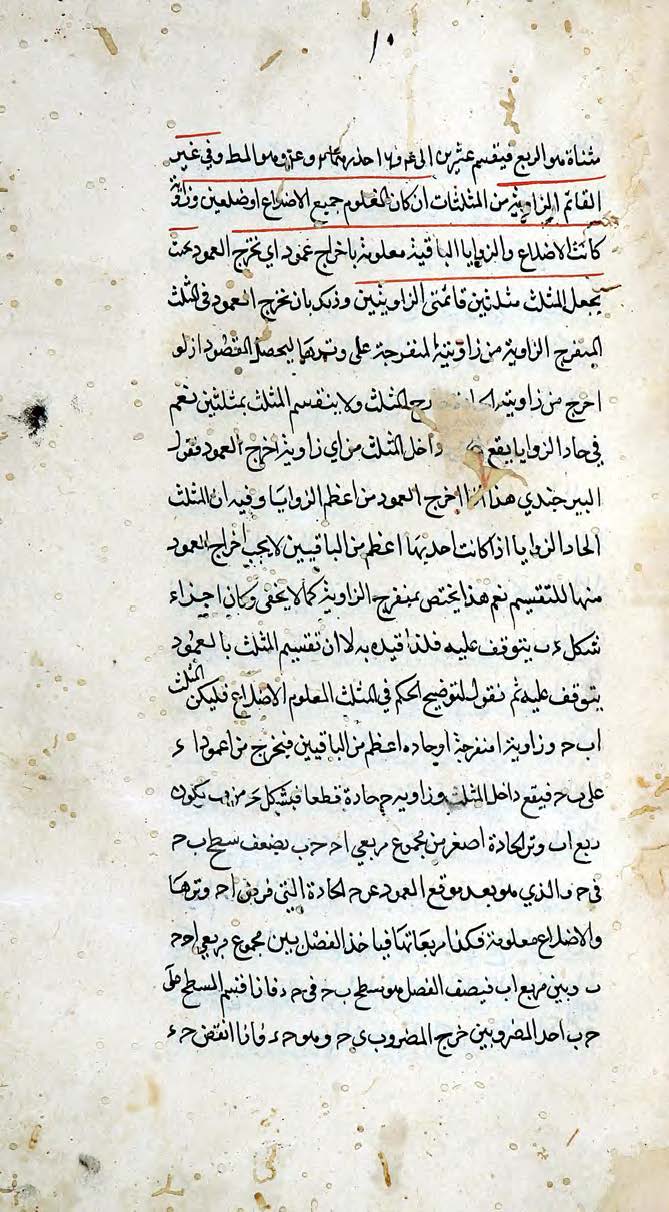 ١٠
مثناة هو الربع فيقسم عثرين الى ٤ و ١٦ وهو المط وفى غير
القائم الزاوية من المثلثات ان كان المعلوم جميع الاضلاع او ضلعين وزاوية
كانت الاضلاع والزوايا الباقية معلومة باخراج عمود اى نخرج العمود بحيث
يجعل المثلث مثلثين قائمتى الزاويتين وذلك بان نخرج العمود فى المثلث
المنفرج الزاوية من زاويته المنفرجة على وترها ليحصل المقصود اذ لو
اخرج من زاويته الحادة خارج المثلث ولا ينقسم المثلث بمثلثين نعم
فى حاد الزوايا يقع داخل المثلث من اى زاوية اخرج العمود فقول
البيرجندي هذا اذا اخرج العمود من اعظم الزوايا وفيه ان المثلث
الحاد الزوايا اذا كانت احديها اعظم من الباقيين لا يجب اخراج العمود
منها للتقسيم نعم هذا يختص بمنفرج الزاوية كما لا يخفى وكان اجزاء
شكل ء ب يتوقف عليه فلذا قيده به لا ان تقسيم المثلث بالعمود
يتوقف عليه ثم نقول لتوضيح الحكم فى المثلث المعلوم الاضلاع فليكن المثلث
ا ب ح وزاوية ا منفرجة او حادة اعظم من الباقيين فيخرج من ا عمود ا ء
على ب ح فيقع داخل المثلث وزاويه ح حادة قطعا فبشكل من ب يكون
ربع ا ب وتر الحادة اصغر من مجموع مربعي ا ح ح ب بضعف سطح ب ح
فى ح ء الذي هو بعد موقع العمود عن ح الحادة التى فرض ا ح وترها
والاضلاع معلومة فكذا مربعاتها فياخذ الفضل بين مجموع مربعي ا ح ح
ب وبين مربع ا ب فنصف الفصل هو سطح ب ح فى ح ء فاذا قسم السطح على
ح ب احد المضروبين خرج المضروب ى ح وهو ح ء فاذا انقض ح ء